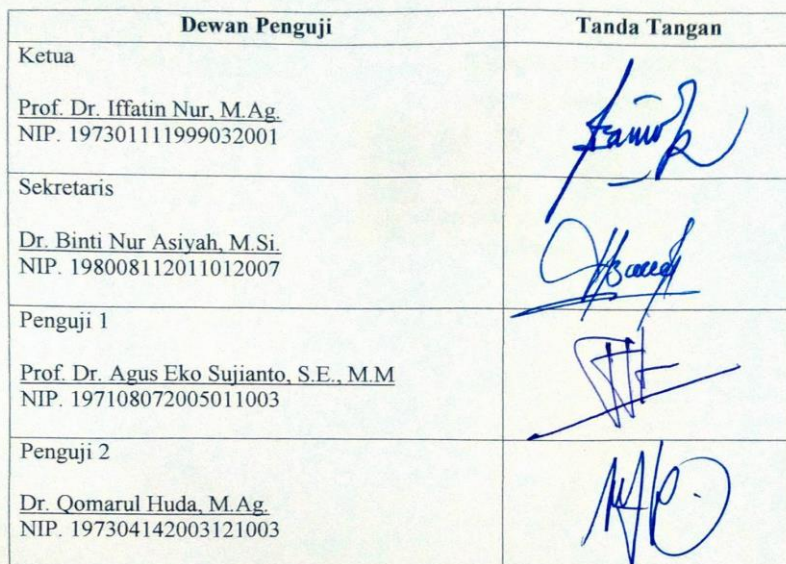 Dewan Penguji
Tanda Tangan
Ketua
Prof. Dr. Iffatin Nur, M.Ag.
NIP. 197301111999032001
Sekretaris
Dr. Binti Nur Asiyah, M.Si.
NIP. 198008112011012007
Penguji 1
Prof. Dr. Agus Eko Sujianto, S.E., M.M
NIP. 197108072005011003
Penguji 2
Dr. Qomarul Huda, M.Ag.
NIP. 197304142003121003